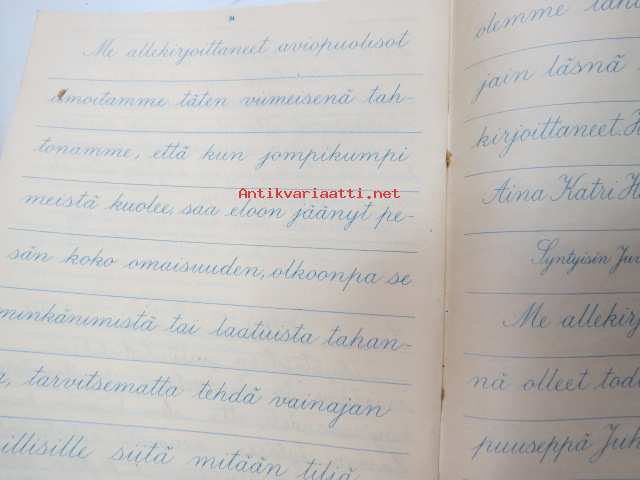 24
Me allekirjoittaneet aviopuolisot
ilmoitamme täten viimeisenä tah-
tonamme, että kun jompikumpi
meistä kuolee, saa eloon jäänyt pe-
sän koko omaisuuden, olkoonpa se
minkänimistä tai laatuista tahan-
a, tarvitsematta tehdä vainajan
illisille siitä mitään tiliä
Antikvariaatti.net
olemme
jain läsnä
kirjoittaneet.
Aina Katri
Syntyisin
Me allekirj
nä olleet tod
puuseppä Juh